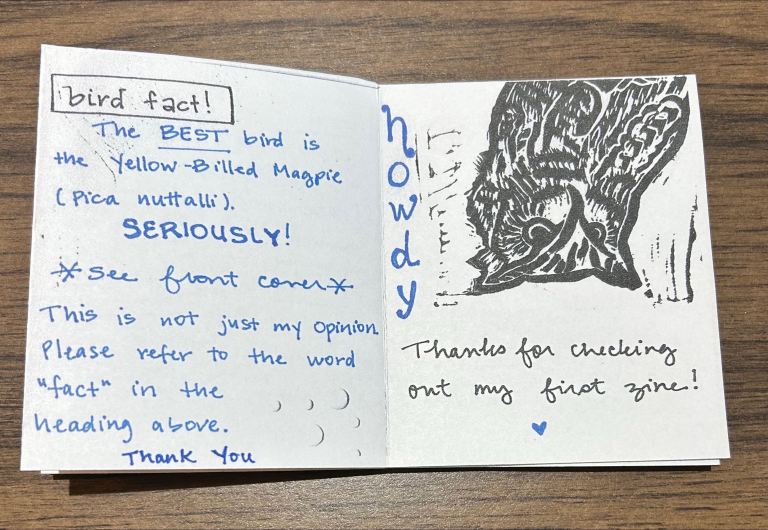 bird fact!
The BEST bird is
the Yellow-Billed Magpie
(Pica nuttalli).
SERIOUSLY!
*See front cover*
This is not just my opinion.
Please refer to the word
"fact" in the
heading above.
Thank You
howdy
Thanks for checking
out my first zine!